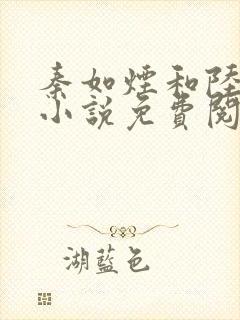 秦如煙和陸
小說免費閱
湖藍色